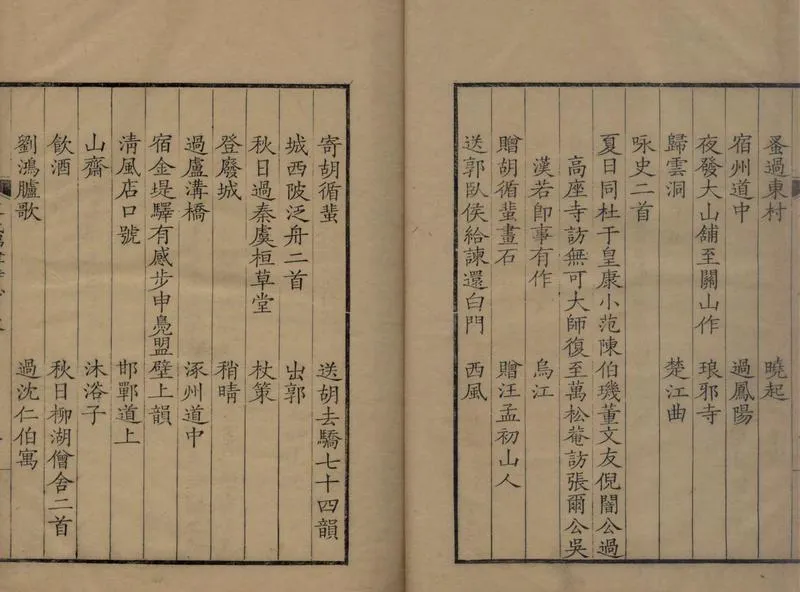 蚤過東村 曉起
宿州道中 過鳳陽
夜發大山舖至關山作 琅邪寺
歸雲洞 楚江曲
咏史二首
夏日同杜于皇康小范陳伯璣董文友倪闇公過
高座寺訪無可大師復至萬松菴訪張爾公吳
漢若卽事有作 烏江
贈胡循蜚畫石 贈汪孟初山人
送郭臥侯給諫還白門 西風
寄胡循蜚 送胡去驕七十四韻
城西陂泛舟二首 出郭
秋日過秦虞桓草堂 杖策
登廢城 稍晴
過盧溝橋 涿州道中
宿金堤驛有感步申鳧盟壁上韻
清風店口號 邯鄲道上
山齋 沐浴子
飲酒 秋日柳湖僧舍二首
劉鴻臚歌 過沈仁伯寓